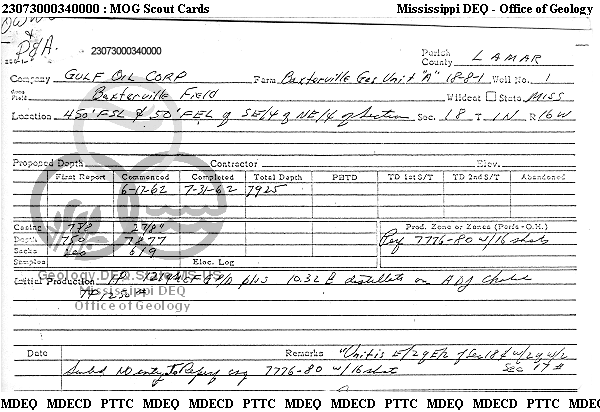 23073000340000 : MOG Scout Cards Mississippi DEQ - Office of Geology
P&A.
23073000340000
Parish County LAMAR
Company GULF OIL CORP Farm Baxterville Gas Unit "A" 18-8-1 Well No. 1
Field Baxterville Field Wildcat State MISS
Location 450' FSL & 50' FEL of SE/4 of NE/4 of Section Sec. 18 T 1N R 16W
Proposed Depth Contractor Elev.
First Report Commenced Completed Total Depth PBTD TD 1st S/T TD 2nd S/T Abandoned
6-17-62 7-31-62 7925
Casing 2 7/8" Prod. Zone or Zones (Perfs-O.H.)
Depth 750 7877 Perf 7776-80 w/16 shots
Sacks 200 619
Samples Elec. Log
Geology.DEQ.State.MS.US
Initial Production plus 10.32 B distillate on ADJ choke
Mississippi DEQ
Office of Geology
Date Remarks "Unit is E/2 of E/2 of Sec 18 & W/2 of W/2
Sec 17 #
7776-80 w/16 shots
MDEQ MDECD PTTC MDEQ MDECD PTTC MDEQ MDECD PTTC MDEQ MDECD